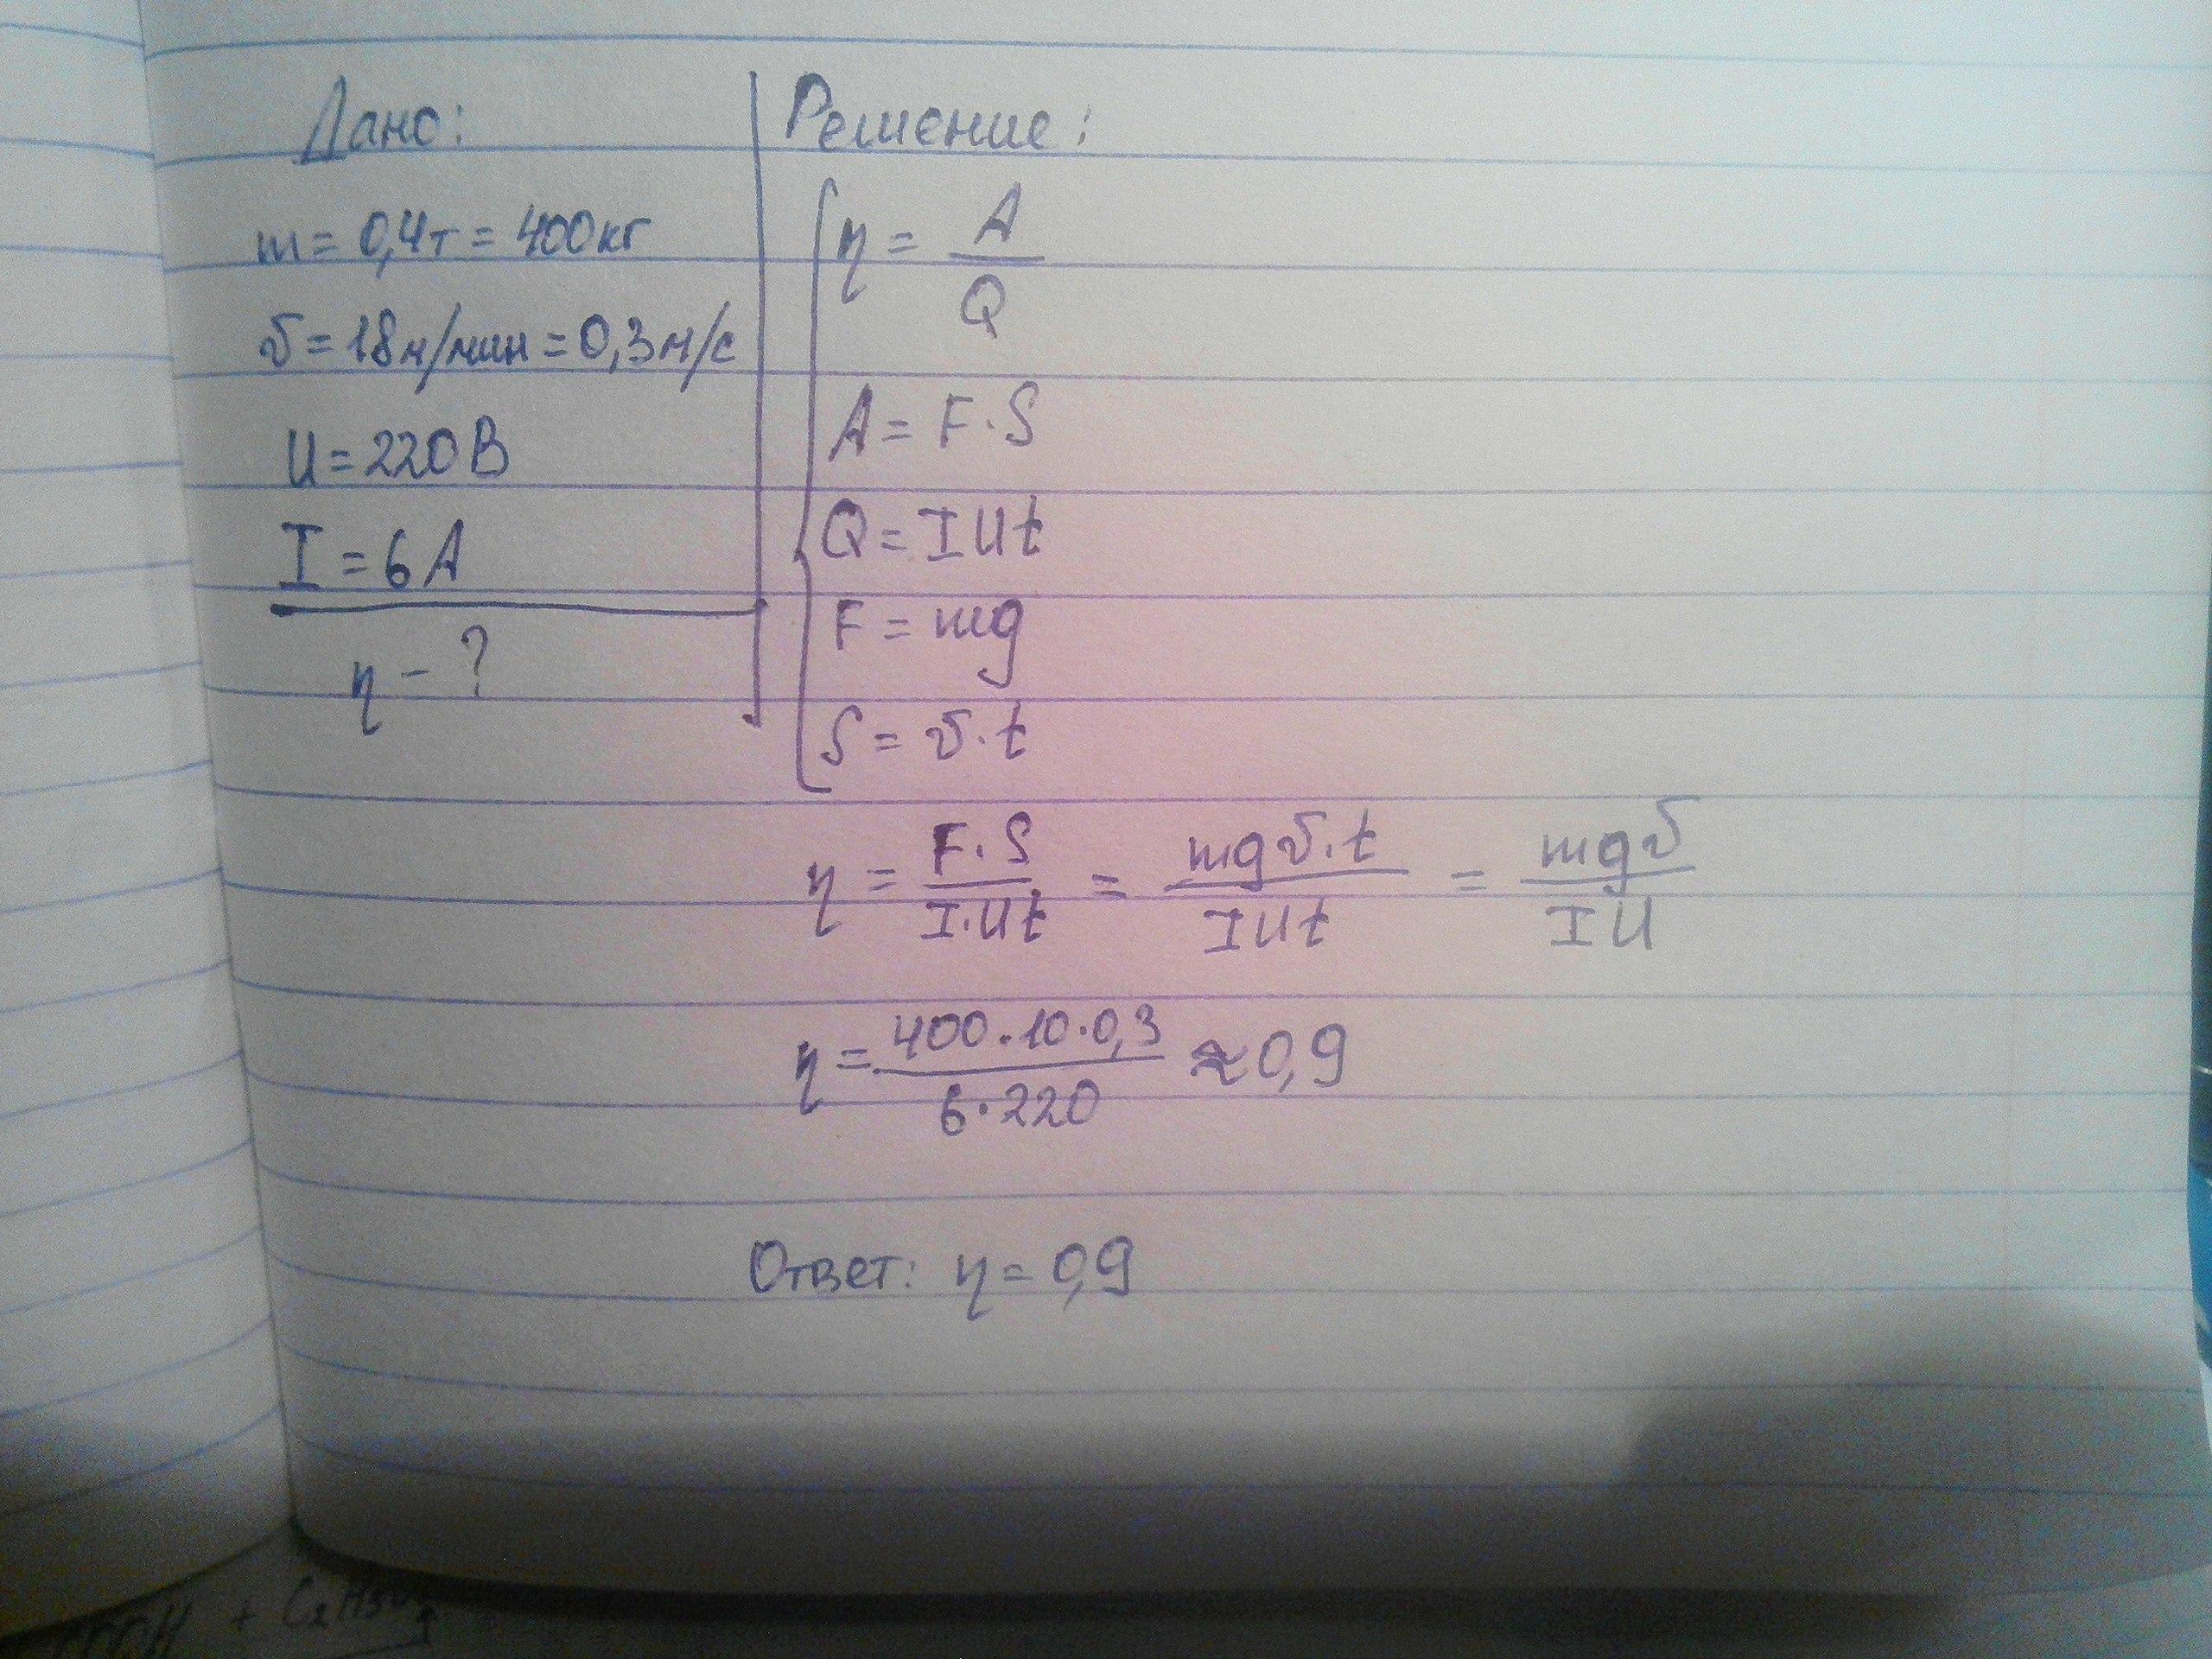 Дано:
m = 0,4т = 400кг
υ = 18м/мин = 0,3м/с
U = 220В
I = 6А
η - ?
Решение:
η = A/Q
A = F·S
Q = IUt
F = mg
S = υ·t
η = F·S/I·Ut = mgυ·t/IUt = mgυ/IU
η = 400·10·0,3/6·220 ≈ 0,9
Ответ: η = 0,9
+ C₂H5O